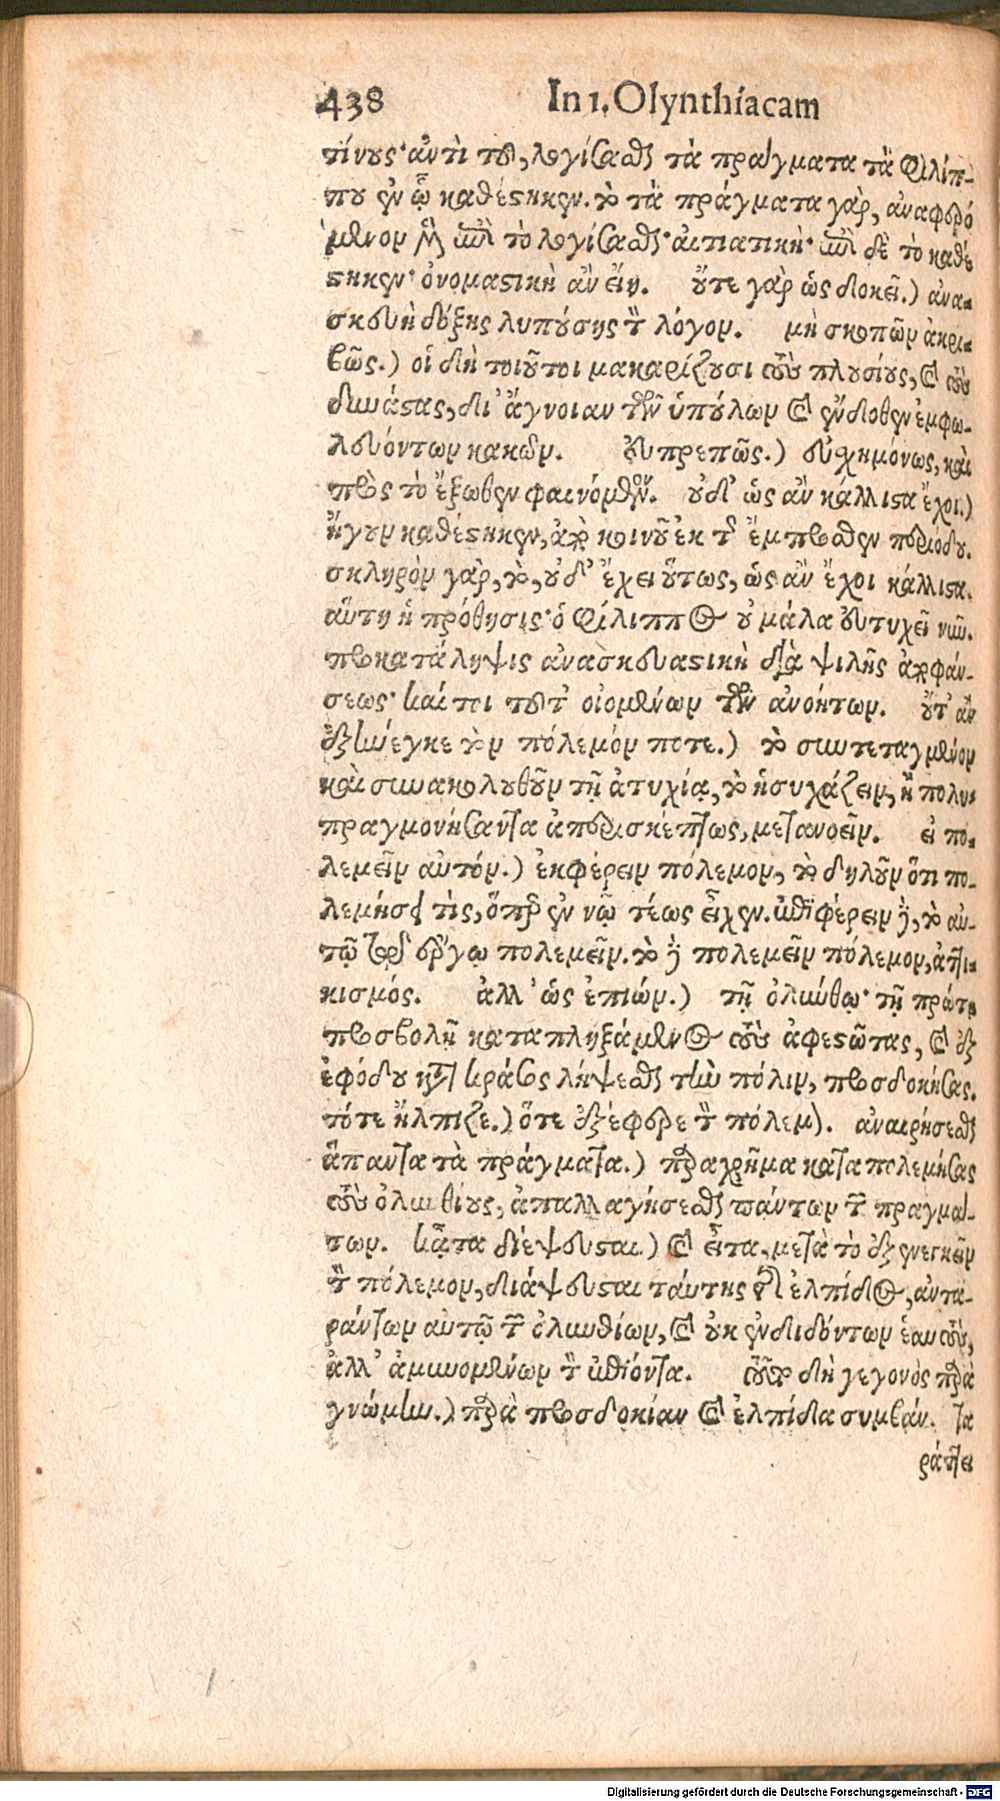 438 In 1. Olynthiacam
τίνους· ἀντὶ τοῦ, λογίσασθαι τὰ πράγματα τὰ Φιλίπ-
που ἐν ᾧ καθέστηκεν. τὸ τὰ πράγματα γὰρ, ἀναφερό
μενον μὲν ἐπὶ τὸ λογίσασθαι· αἰτιατικὴ· ἐπὶ δὲ τὸ καθέ
στηκεν· ὀνομαστικὴ ἂν εἴη. οὔτε γὰρ ὡς δοκεῖ.) ἀνα-
σκευὴ δόξης λυπούσης τὸν λόγον. μὴ σκοπῶν ἀκρι-
βῶς.) οἱ δὴ τοιοῦτοι μακαρίζουσι τοὺς πλουσίους, καὶ τοὺς
δυνάστας, δι' ἄγνοιαν τῶν ὑπούλων καὶ ἔνδοθεν ἐμφω-
λευόντων κακῶν. εὐπρεπῶς.) εὐσχημόνως, καὶ
πρὸς τὸ ἔξωθεν φαινόμενον. οὐδ' ὡς ἂν κάλλιστα ἔχοι.)
ἤγουν καθέστηκεν, ἀπὸ κοινοῦ ἐκ τῆς ἔμπροσθεν περιόδου.
σκληρὸν γὰρ, τὸ, οὐδ' ἔχει οὕτως, ὡς ἂν ἔχοι κάλλιστα.
αὕτη ἡ πρόθησις· ὁ Φίλιππος οὐ μάλα εὐτυχεῖ νῦν.
προκατάληψις ἀνασκευαστικὴ διὰ ψιλῆς ἀποφάν-
σεως· καίτοι τοῦτ' οἰομένων τῶν ἀνοήτων. οὔτ' ἂν
ἐξήνεγκε τὸν πόλεμόν ποτε.) τὸ συντεταγμένον
καὶ συνακολουθοῦν τῇ ἀτυχίᾳ, τὸ ἡσυχάζειν, ἢ πολυ-
πραγμονήσαντα ἀπερισκέπτως, μετανοεῖν. εἰ πο-
λεμεῖν αὐτόν.) ἐκφέρειν πόλεμον, τὸ δηλοῦν ὅτι πο-
λεμήσει τὶς, ὅπερ ἐν νῷ τέως εἶχεν. ἐπιφέρειν δὲ, τὸ αὐ-
τῷ τῷ ἔργῳ πολεμεῖν. τὸ δὲ πολεμεῖν πόλεμον, ἀττι-
κισμός. ἀλλ' ὡς ἐπιών.) τῇ ὀλύνθῳ· τῇ πρώτῃ
προσβολῇ καταπληξάμενος τοὺς ἀφεστῶτας, καὶ ἐξ
ἐφόδου κατὰ κράτος λήψεσθαι τὴν πόλιν, προσδοκήσας.
τότε ἤλπιζε.) ὅτε ἐξέφερε τὸν πόλεμον. ἀναιρήσεσθαι
ἅπαντα τὰ πράγματα.) παραχρῆμα καταπολεμήσας
τοὺς ὀλυνθίους, ἀπαλλαγήσεσθαι πάντων τῶν πραγμά-
των. κᾆτα διέψευσται.) καὶ εἶτα, μετὰ τὸ ἐξενεγκεῖν
τὸν πόλεμον, διάψευσται ταύτης τῆς ἐλπίδος, ἀντα-
ράντων αὐτῷ τῶν ὀλυνθίων, καὶ οὐκ ἐνδιδόντων ἑαυτοὺς,
ἀλλ' ἀμυνομένων τὸν ἐπιόντα. τοῦτο δὴ γεγονὸς παρὰ
γνώμην.) παρὰ προσδοκίαν καὶ ἐλπίδα συμβάν. τα
ράττει
Digitalisierung gefördert durch die Deutsche Forschungsgemeinschaft - DFG